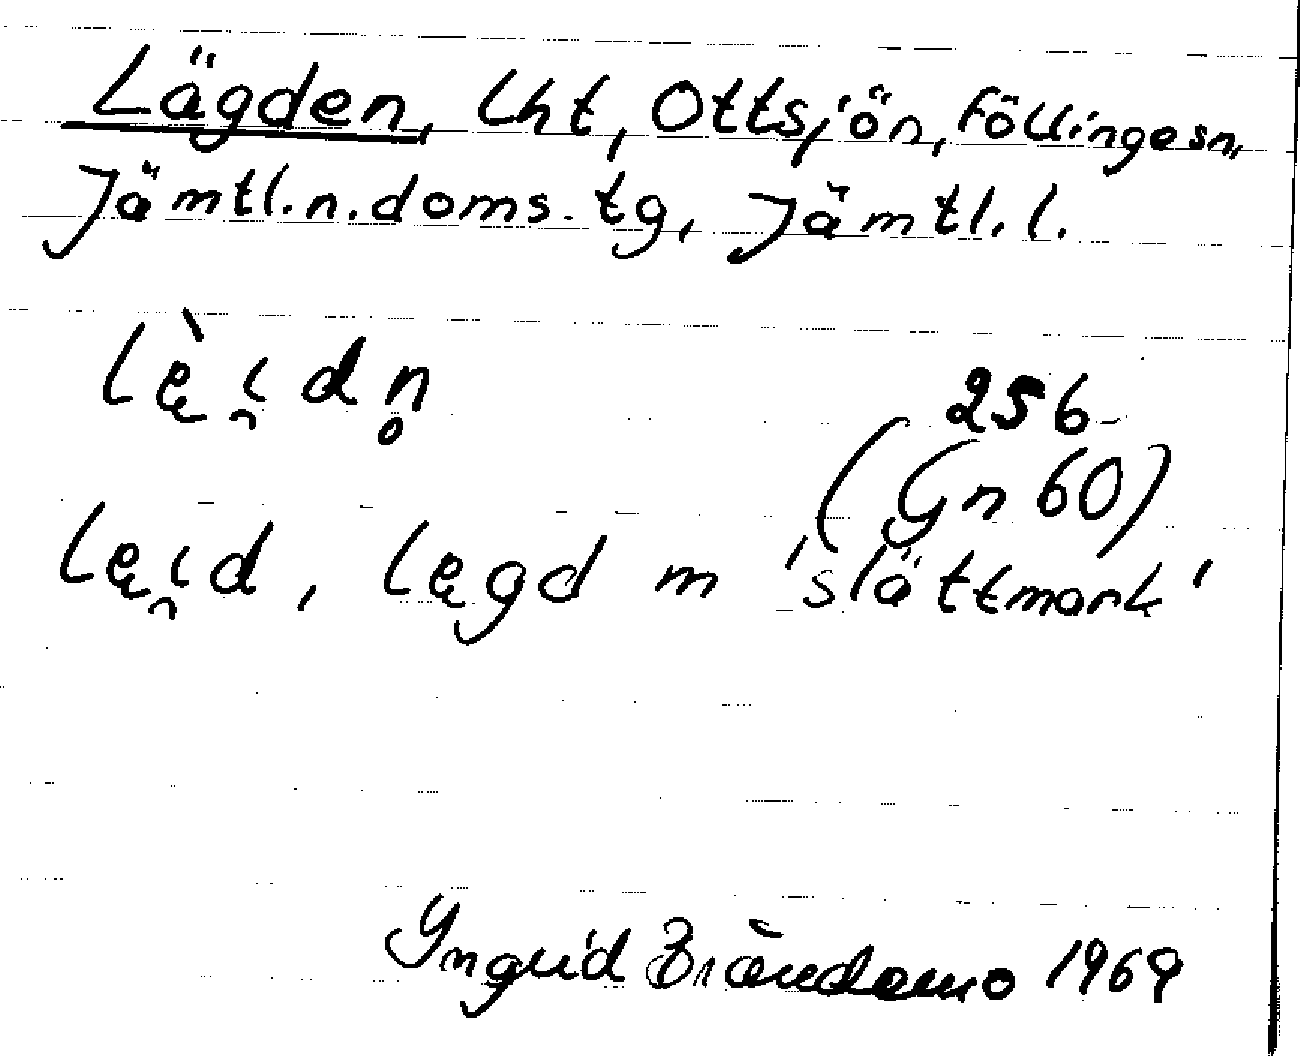 Lägden, lht, Ottsjön, Föllinge sn,
Jämtl. n. doms. tg, Jämtl. l.
lę̀i̯dn̥
256
(Gn 60)
lęi̯d, lęgd m 'slåttmark'
Yngrid Brändomo 1969